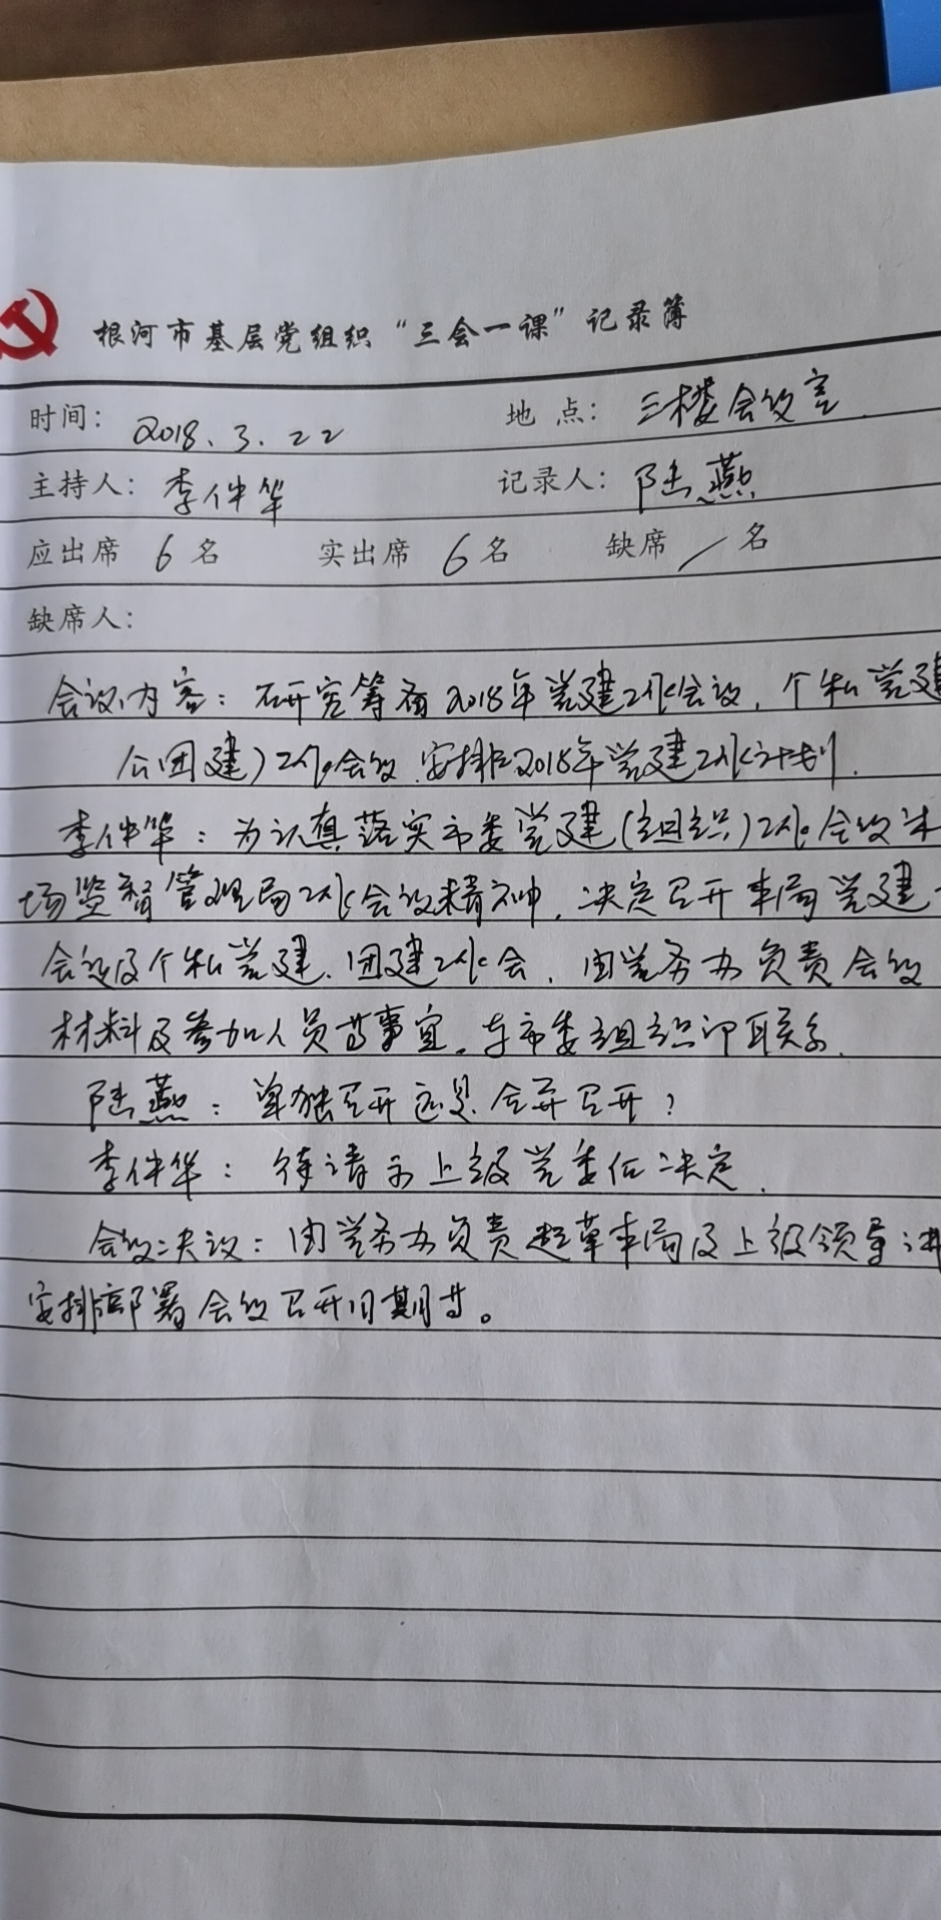 根河市基层党组织“三会一课”记录簿
时间： 2018.3.22 地点： 三楼会议室
主持人： 李仲华 记录人： 陆燕
应出席 6 名 实出席 6 名 缺席 / 名
缺席人：
会议内容：研究筹备2018年党建工作会议，个私党建
团建）工作会议，安排2018年党建工作计划．
李仲华：为认真落实市委党建（组织）工作会议
场监督管理局工作会议精神，决定召开本局党建
会议及个私党建、团建工作会，由党务办负责会议
材料及参加人员等事宜。与市委组织部联系．
陆燕：单独召开还是合并召开？
李仲华：待请示上级党委后决定．
会议决议：由党务办负责起草本局及上级领导讲
安排部署会议召开日期等。